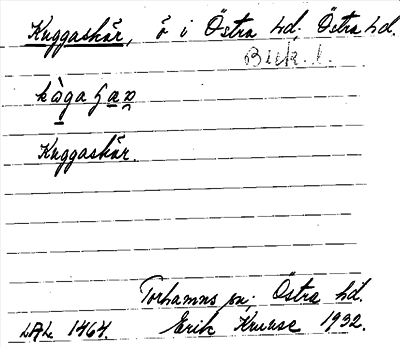 Kuggaskär, ö i Östra hd. Östra hd.
Blek. l.
Kuggaskär.
Torhamns sn; Östra hd.
LAL 1464. Erik Kruuse 1932.